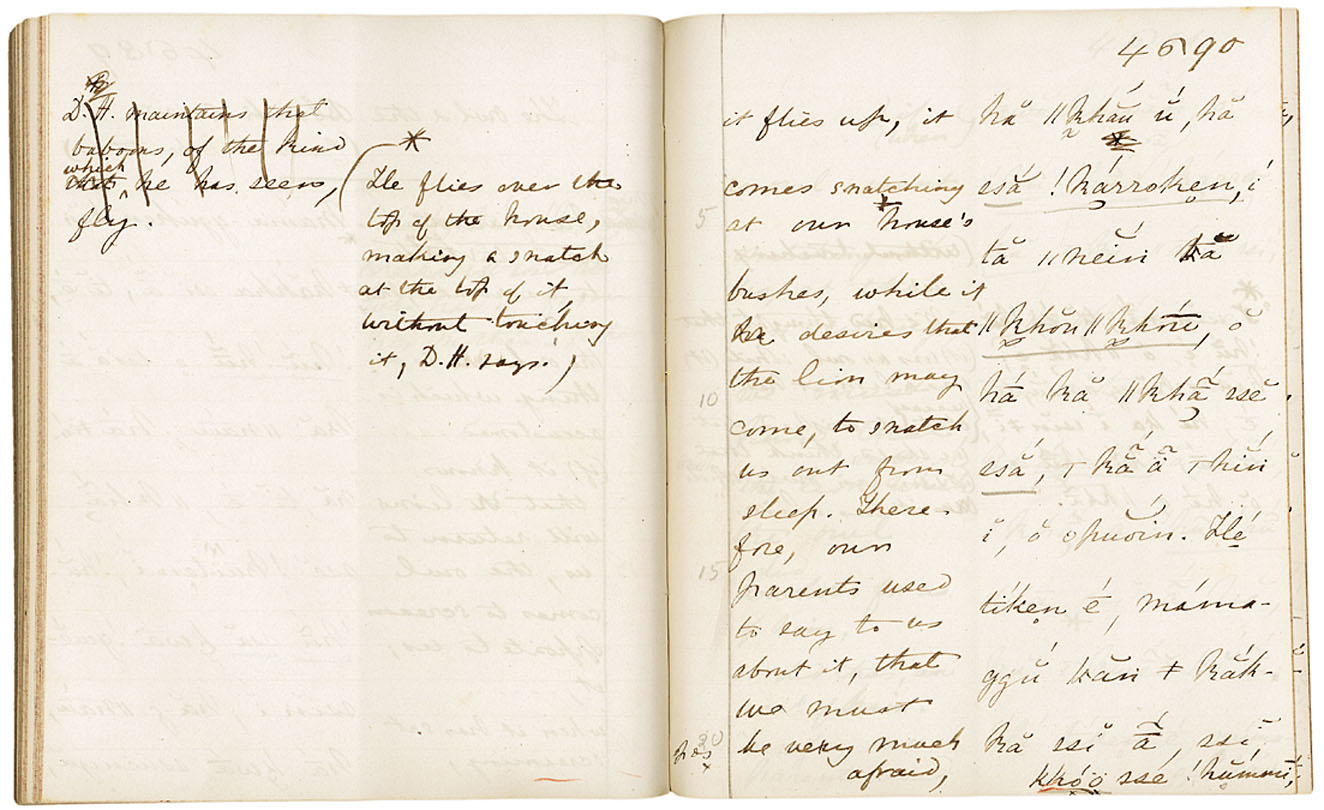 D. H. maintains that
baboons, of the kind
which
that he has seen,
fly.
*
(He flies over the
top of the house,
making a snatch
at the top of it,
without touching
it, D. H. says.)
4690
it flies up, it
comes snatching
at our house's
bushes, while it
desires that
the lion may
come, to snatch
us out from
sleep. There-
fore, our
parents used
to say to us
about it, that
we must
be very much
afraid,
5
10
15
20
hă ǁkhău ŭ, hă
*
ssắ !kárroken, ĭ
tă ǁnĕin kă
ǁkhŏu ǁkhŏu, ŏ
hā́ kă ǁkhā̃ ssĕ
ssắ,
ĭ, ŏ ʘpuŏin. Hé
tíken é, máma-
ggŭ́ kăn ǂkăk-
kă ssĭ ā́, ssĭ,
kkóö ssé !hŭmmĭ,